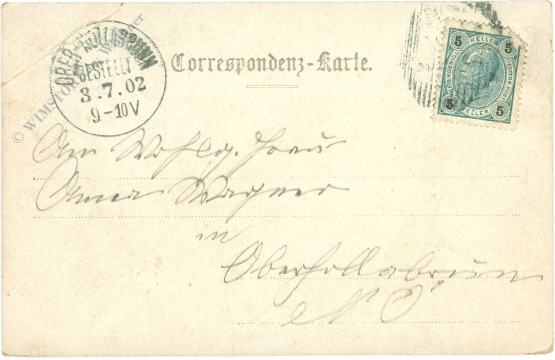 OBER-HOLLABRUNN
BESTELLT
3.7.02
9-10V
Correspondenz-Karte.
5 HELLER 5
5 HELLER 5
© WIMSTORY
An Wohlg. Frau
Anna Wagner
in
Oberhollabrun
N Ö